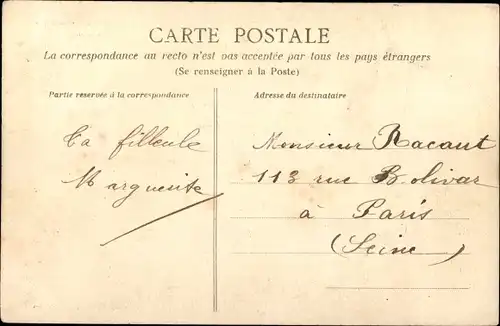 CARTE POSTALE
La correspondance au recto n'est pas acceptée par tous les pays étrangers
(Se renseigner à la Poste)
Partie reservée à la correspondance
Ta filleule
Marguerite
Adresse du destinataire
Monsieur Racaut
113 rue Bolivar
à Paris
(Seine)